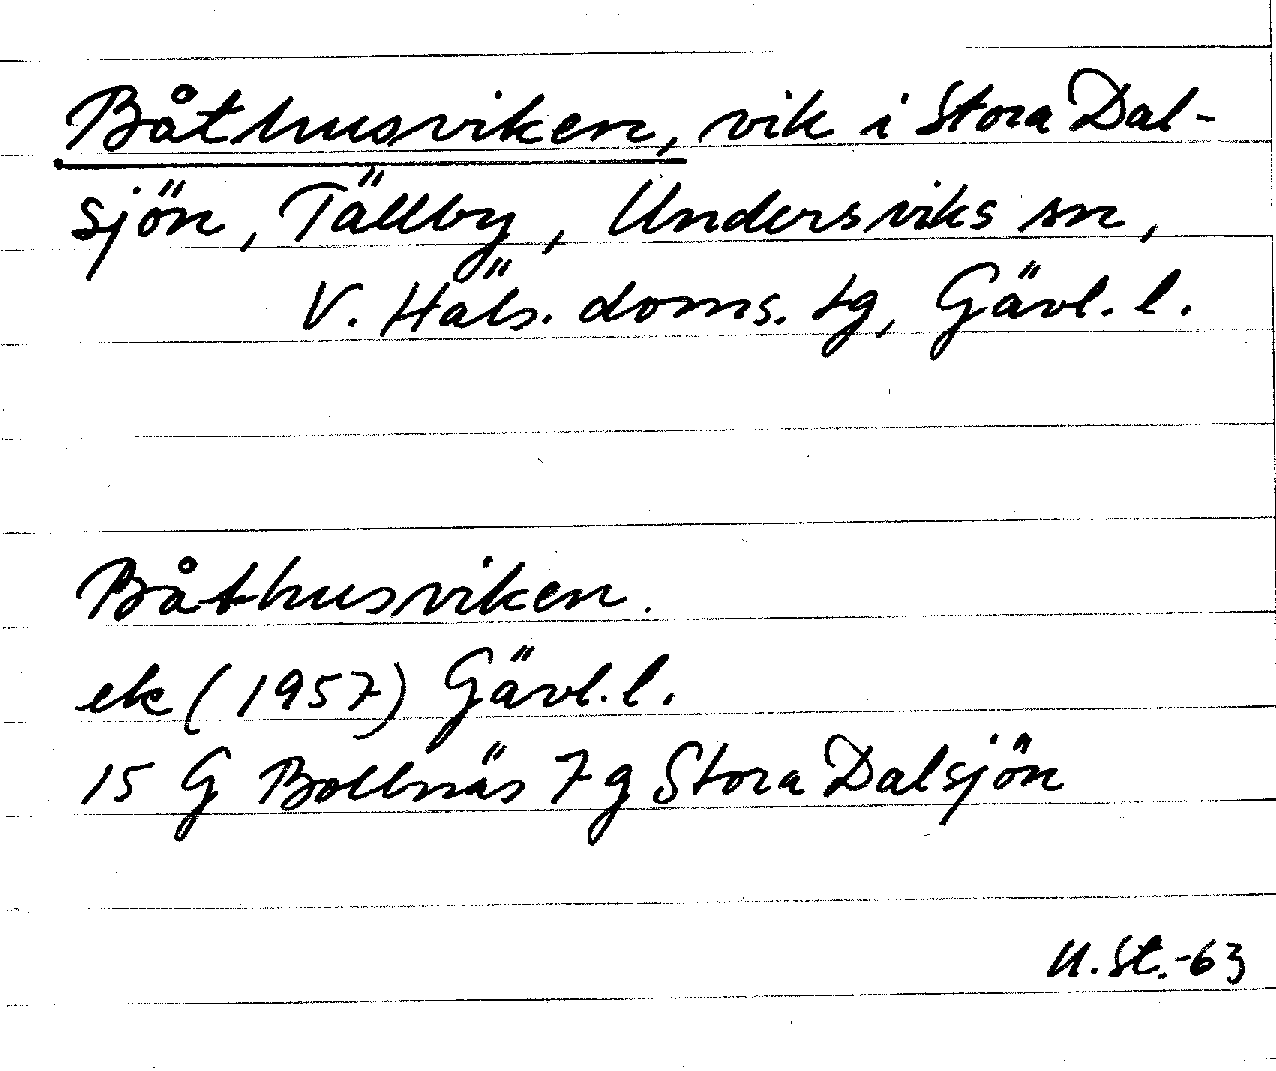 Båthusviken, vik i Stora Dal-
sjön, Tällby, Undersviks sn,
V. Häls. doms. tg, Gävl. l.
Båthusviken.
ek (1957) Gävl. l.
15 G Bollnäs 7 g Stora Dalsjön
U. St. -63